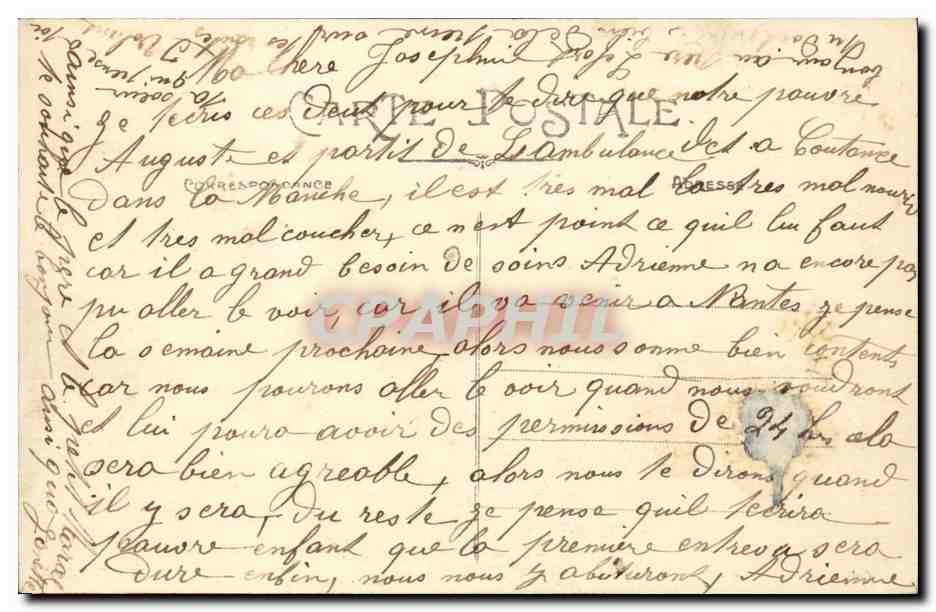 Ma chere Josephine
CARTE POSTALE
ge tecris ces deux pour te dire que notre pauvre
Auguste et partis de Lambulance Ict a Coutance
CORRESPONDANCE
ADRESSE
Dans la Manche, il est tres mal tres mal nourri
et tres mal coucher, ce nest point ce quil lui faut
car il a grand besoin de soins Adrienne na encore pas
pu aller le voir, car il va venir a Nantes ge pense
la semaine prochaine, alors nous somme bien contents
car nous pourons aller le voir quand nous voudront
et lui poura avoir des permissions de 24 hrs cela
sera bien agreable, alors nous te dirons quand
il y sera, du reste ge pense quil tecrira
pauvre enfant que la première entreva sera
dure enfin, nous nous y abituront, Adrienne
CPAPHIL
ainsi que le pere et le petit
te souhaite le bonjour ainsi
ta soeur
qui pense
toi
bonjour au pere